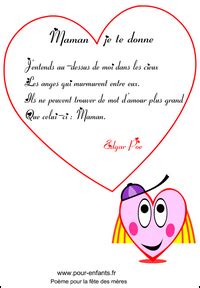 Maman je te donne
J'entends au-dessus de moi dans les cieux
Les anges qui murmurent entre eux.
Ils ne peuvent trouver de mot d'amour plus grand
Que celui-ci : Maman.
Edgar Poe
www.pour-enfants.fr
Poème pour la fête des mères